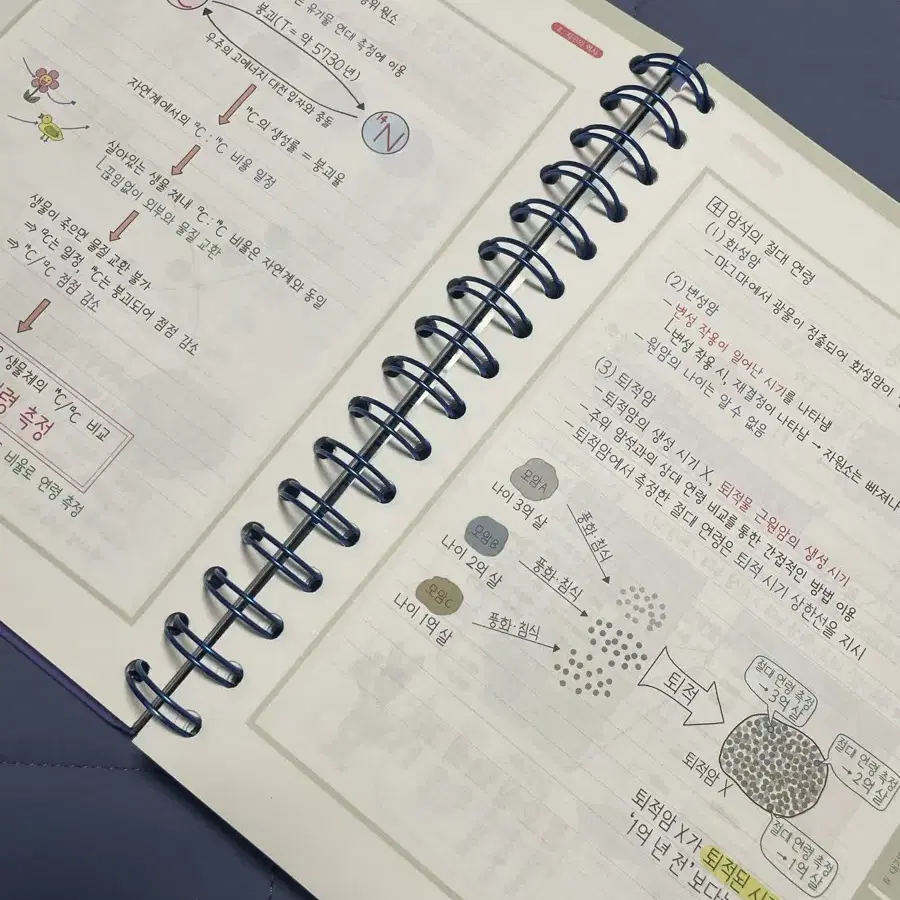 위 원소
는 유기물 연대 측정에 이용
붕괴(T = 약 5730년)
우주의 고에너지 대전 입자와 충돌
¹⁴N
¹⁴C의 생성률 = 붕괴율
자연계에서의 ¹⁴C : ¹²C 비율 일정
살아있는 생물 체내 ¹⁴C : ¹²C 비율은 자연계와 동일
└끊임없이 외부와 물질 교환
생물이 죽으면 물질 교환 불가
⇒ ¹²C는 일정, ¹⁴C는 붕괴되어 점점 감소
⇒ ¹⁴C/¹²C 점점 감소
생물체의 ¹⁴C/¹²C 비교
령 측정
비율로 연령 측정
4 암석의 절대 연령
(1) 화성암
- 마그마에서 광물이 정출되어 화성암이
(2) 변성암
- 변성 작용이 일어난 시기를 나타냄
└변성 작용 시, 재결정이 나타남 → 자원소는 빠져나
- 원암의 나이는 알 수 없음
(3) 퇴적암
- 퇴적암의 생성 시기 X, 퇴적물 근원암의 생성 시기
- 주위 암석과의 상대 연령 비교를 통한 간접적인 방법 이용
- 퇴적암에서 측정한 절대 연령은 퇴적 시기 상한선을 지시
모암A
나이 3억 살
풍화·침식
모암B
나이 2억 살
풍화·침식
모암C
나이 1억 살
풍화·침식
퇴적
절대 연령 측정
→ 3억 살
절대 연령 측정
→ 2억 살
퇴적암 X
절대 연령 측정
→ 1억 살
퇴적암 X가 퇴적된 시
'1억 년 전'보다는